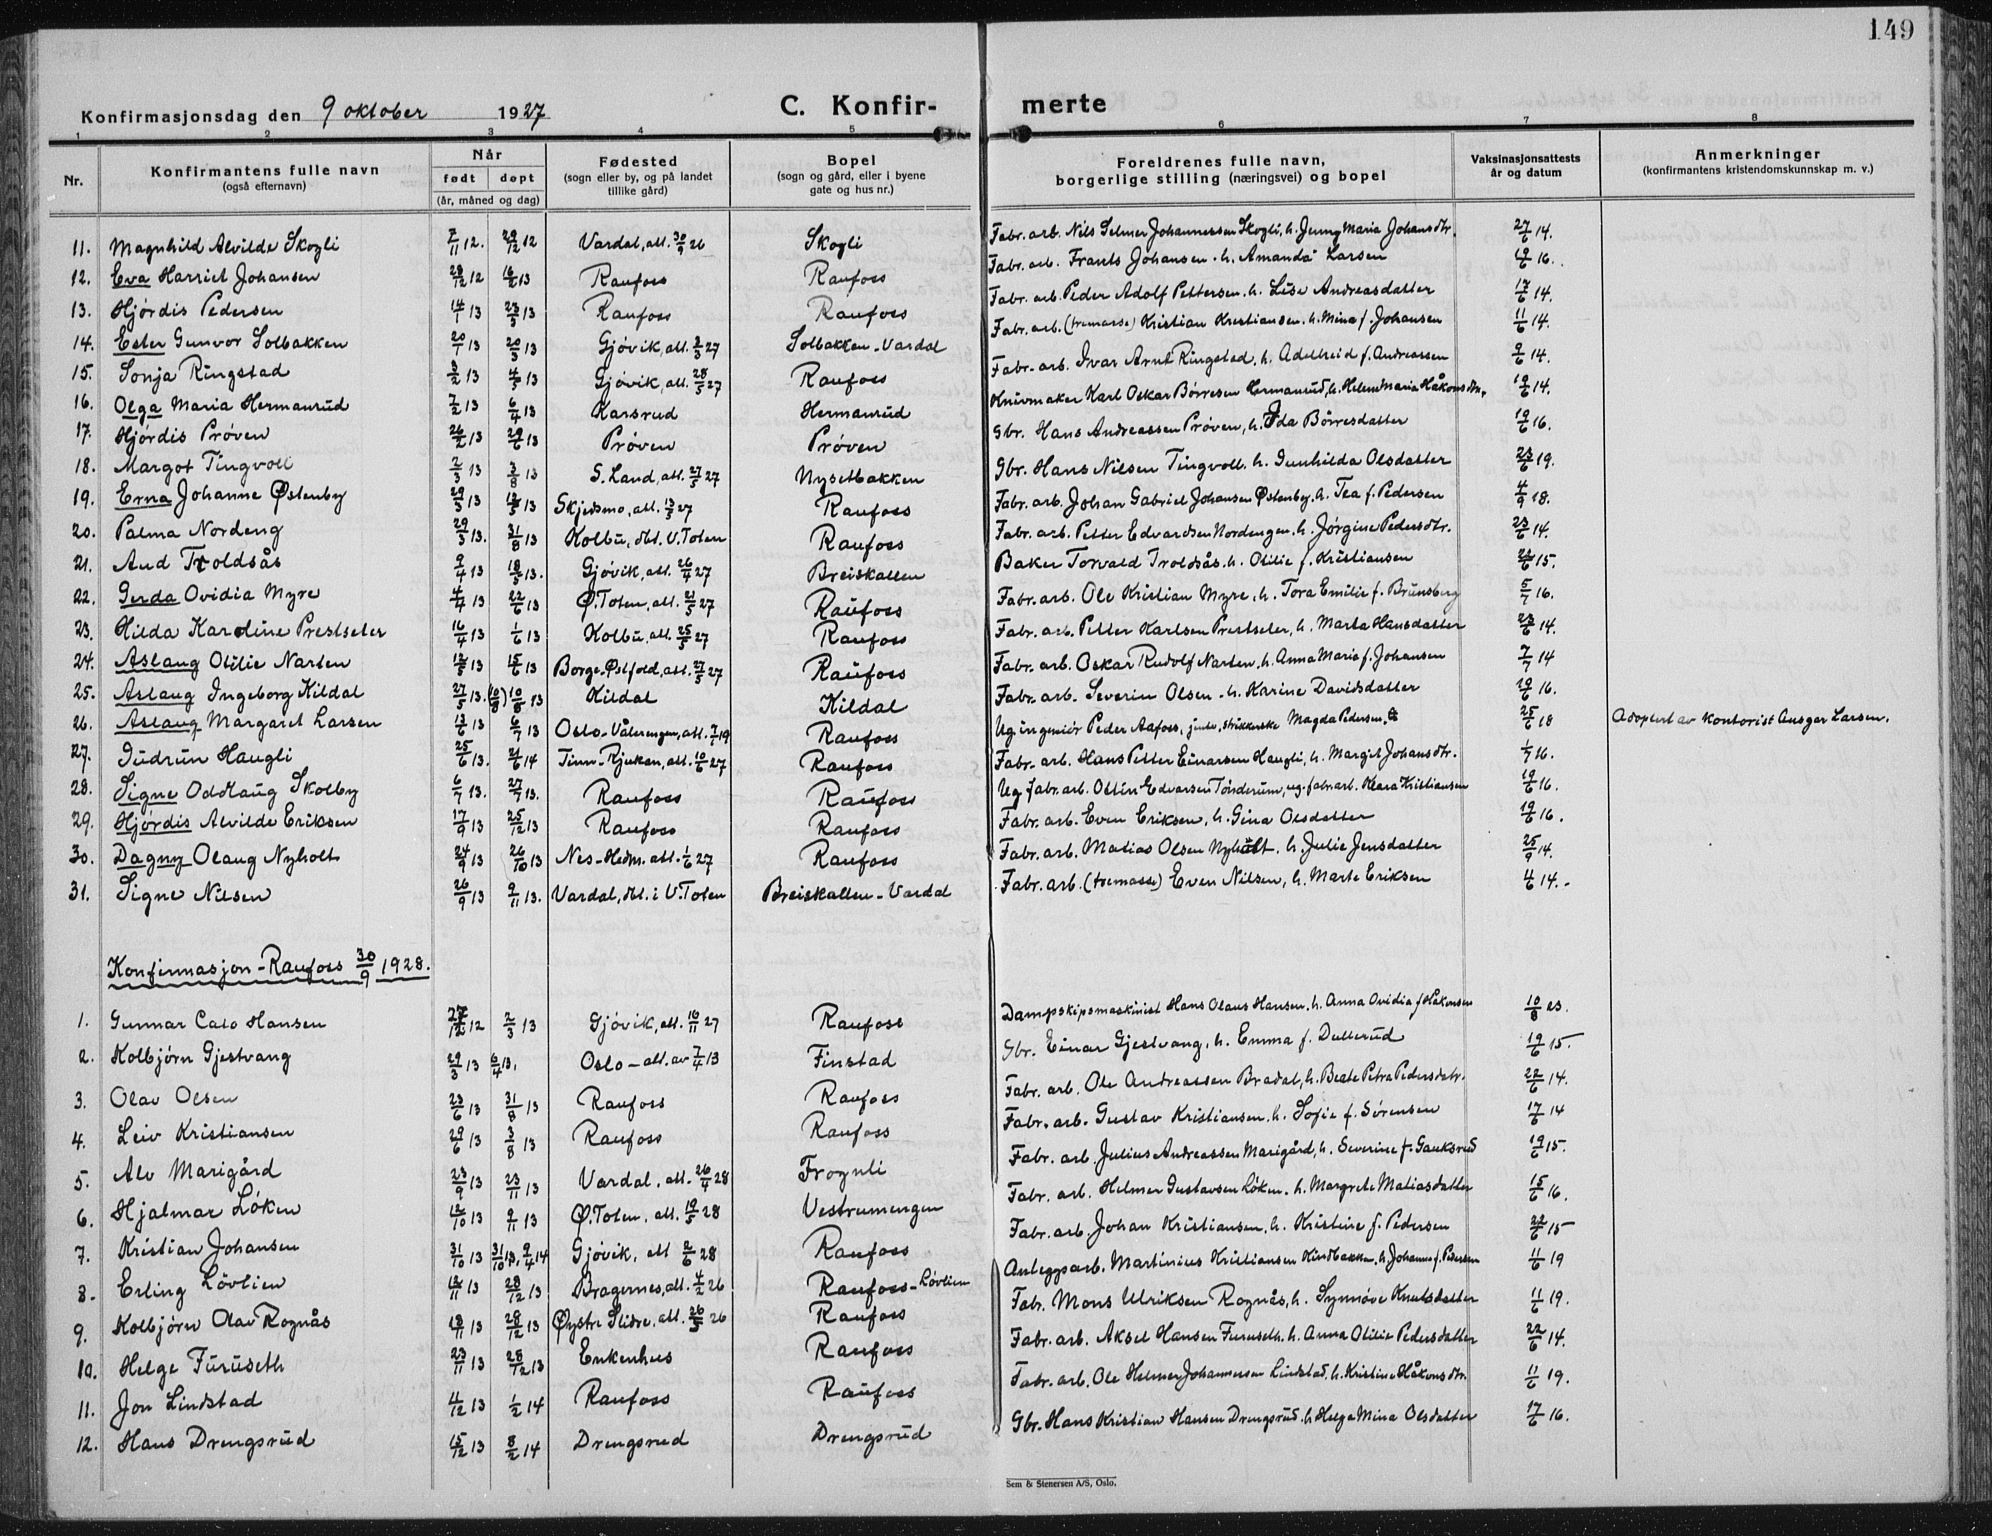 149
Konfirmasjonsdag den 9 oktober 1927 C. Konfir- merte
1 2 3 4 5 6 7 8
Nr. Konfirmantens fulle navn (også efternavn) Når født døpt (år, måned og dag) Fødested (sogn eller by, og på landet tillike gård) Bopel (sogn og gård, eller i byene gate og hus nr.) Foreldrenes fulle navn, borgerlige stilling (næringsvei) og bopel Vaksinasjonsattests år og datum Anmerkninger (konfirmantens kristendomskunnskap m. v.)
11. Magnhild Alvilde Skogli 7/11 12. 29/12 12 Vardal, att. 30/9 26 Skogli Fabr. arb. Nils Selmer Johannessen Skogli, h. Jenny Maria Johansdtr. 27/6 14.
12. Eva Harriet Johansen 28/12 12 16/2 13 Raufoss Raufoss Fabr. arb. Frants Johansen. h. Amanda Larsen 19/6 16.
13. Hjördis Pedersen 14/1 13 23/3 13 Raufoss Raufoss Fabr. arb. Peder Adolf Pettersen. h. Lise Andreasdatter 17/6 14.
14. Ester Gunvor Solbakken 20/1 13 20/3 13 Gjövik, att. 3/3 27 Solbakken - Vardal Fabr. arb. (tremasse) Kristian Kristiansen. h. Mina f. Johansen 11/6 14.
15. Sonja Ringstad 3/2 13 4/5 13 Gjövik, att. 28/5 27 Raufoss Fabr. arb. Ivar Arnt Ringstad, h. Adelheid f. Andreassen 9/6 14.
16. Olga Maria Hermanrud 7/2 13 6/4 13 Karsrud Hermanrud Knivmaker Karl Oskar Börresen Hermanrud, h. Helene Maria Håkonsdtr. 19/6 14.
17. Hjördis Pröven 26/2 13 29/6 13 Pröven Pröven Gbr. Hans Andreassen Pröven, h. Ida Börresdatter 19/6 16.
18. Margot Tingvoll 2/3 13 3/8 13 S. Land, att. 27/5 27 Nysetbakken Gbr. Hans Nilsen Tingvoll. h. Gunhilda Olsdatter 23/6 19.
19. Erna Johanne Østenby 29/3 13 12/5 13 Skjedsmo, att. 13/5 27 Raufoss Fabr. arb. Johan Gabriel Johansen Østenby, h. Tea f. Pedersen 4/9 18.
20. Palma Nordeng 29/3 13. 31/8 13 Kolbu, dbt. V. Toten Raufoss Fabr. arb. Petter Edvardsen Nordengen, h. Jörgine Pedersdtr. 23/6 14.
21. Aud Troldsås 9/4 13 18/5 13. Gjövik, att. 26/4 27 Breiskallen Baker Torvald Troldsås. h. Otilie f. Kristiansen 22/6 15.
22. Gerda Ovidia Myre 4/4 13 22/6 13 Ø. Toten, att. 21/5 27 Raufoss Fabr. arb. Ole Kristian Myre, h. Tora Emilie f. Brunsberg 5/7 16.
23. Hilda Karoline Prestseter 16/4 13 1/6 13 Kolbu, att. 25/5 27 Raufoss Fabr. arb. Petter Karlsen Prestseter, h. Marta Hansdatter 23/6 14.
24. Aslaug Otilie Narten 12/5 13 15/6 13 Borge - Østfold, att. 27/5 27 Raufoss Fabr. arb. Oskar Rudolf Narten, h. Anna Marie f. Johansen 7/7 14
25. Aslaug Ingeborg Kildal 27/5 13. (10/8) 10/8 13 Kildal Kildal Fabr. arb. Severin Olsen. h. Karine Davidsdatter 19/6 16.
26. Aslaug Margaret Larsen 13/6 13 6/7 13 Oslo - Vålerengen, att. 7/7 19 Raufoss Ug ingeniör Peder Aafoss, jente, strikkerske Magda Pedersen. 25/6 18 Adoptert av kontorist Ansgar Larsen.
27. Gudrun Haugli 25/6 13. 21/6 14 Tinn - Rjukan, att. 10/6 27 Raufoss Fabr. arb. Hans Petter Einarsen Haugli, h. Margit Johansdtr. 1/7 16.
28. Signe Oddlaug Skolby 6/7 13. 27/7 13. Raufoss Raufoss Ug fabr. arb. Ottin Edvarsen Tönderum, ug. fabr. arb. Klara Kristiansen 19/6 16.
29. Hjördis Alvilde Eriksen 17/9 13 25/12 13 Raufoss Raufoss Fabr. arb. Even Eriksen, h. Gina Olsdatter 19/6 16.
30. Dagny Olaug Nyholt 24/9 13 26/10 13 Nes - Hedm. att. 1/6 27 Raufoss Fabr. arb. Matias Olsen Nyholt. h. Julie Jensdatter 25/9 14.
31. Signe Nilsen 26/9 13 9/11 13. Vardal, dbt. i V. Toten Breiskallen - Vardal Fabr. arb. (tremasse) Even Nilsen, h. Marte Eriksen 4/6 14.
Konfirmasjon - Raufoss 30/9 1928.
1. Gunnar Caro Hansen 27/12 12 2/3 13 Gjövik, att. 16/11 27 Raufoss Dampskipsmaskinist Hans Olaus Hansen. h. Anna Ovidia f Håkonsen 10/8 23.
2. Kolbjörn Gjestvang 29/3 13 6/4 13. Oslo - att. av 7/4 13 Finstad Gbr. Einar Gjestvang, h. Emma f. Dullerud 19/6 15.
3. Olav Olsen 23/6 13 31/8 13 Raufoss Raufoss Fabr. arb. Ole Andreassen Bradal, h. Beate Petra Pedersdatr. 22/6 14.
4. Leiv Kristiansen 29/6 13 3/8 13 Raufoss Raufoss Fabr. arb. Gustav Kristiansen. h. Sofie f. Sörensen 17/6 14
5. Alv Marigård 23/9 13 23/11 13 Vardal, att. 26/4 28 Frognli Fabr. arb. Julius Andreassen Marigård, h. Severine f. Gauksrud 19/6 15.
6. Hjalmar Löken 12/10 13 9/11 13 Ø. Toten, att. 19/5 28 Vestrumengen Fabr. arb. Helmer Gustavsen Löken. h. Margrete Matiasdatter 15/6 16.
7. Kristian Johansen 31/10 13 31/10 13, 9/4 14 Gjövik, att 2/6 28 Raufoss Fabr. arb. Johan Kristiansen, h. Kristine f. Pedersen 22/6 15
8. Erling Lövlien 12/11 13 28/12 13 Bragernes, att. 4/2 26 Raufoss - Lövlien Anleggsarb. Martinius Kristiansen Kindbakken, h. Johanne f. Pedersen 11/6 19
9. Kolbjörn Olav Rognås 18/11 13 28/12 13 Øystre Slidre, att. 26/5 26 Raufoss Fabr. Mons Ulriksen Rognås, h. Synnöve Knutsdatter 11/6 19.
10. Helge Furuseth 23/11 13 28/12 13 Enkenhus Raufoss Fabr. arb. Aksel Hansen Furuseth. h. Anna Otilie Pedersdatter 22/6 14.
11. Jon Lindstad 4/12 13 1/2 14 Raufoss Raufoss Fabr. arb. Ole Helmer Johannessen Lindstad, h. Kristine Håkonsdtr. 11/6 19.
12. Hans Drengsrud 15/12 13 8/2 14 Drengsrud Drengsrud Gbr. Hans Kristian Hansen Drengsrud. h. Helga Mina Olsdatter 17/6 16.
Sem & Stenersen A/S, Oslo.